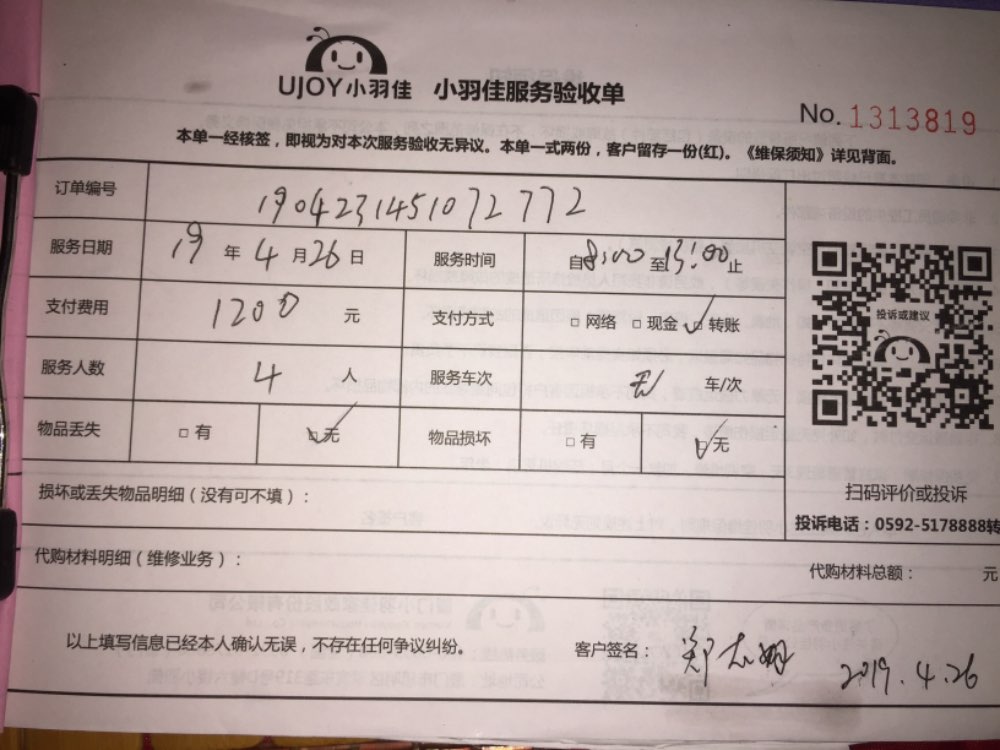 UJOY小羽佳 小羽佳服务验收单
No. 1313819
本单一经核签，即视为对本次服务验收无异议。本单一式两份，客户留存一份(红)。《维保须知》详见背面。
订单编号 1904231451072772
服务日期 19 年 4 月 26 日 服务时间 自 8:00 至 13:00 止
支付费用 1200 元 支付方式 □ 网络 □ 现金 ☑ 转账
投诉或建议
服务人数 4 人 服务车次 车/次
物品丢失 □ 有 ☑ 无 物品损坏 □ 有 ☑ 无
损坏或丢失物品明细（没有可不填）：
扫码评价或投诉
投诉电话：0592-5178888转
代购材料明细（维修业务）：
代购材料总额： 元
以上填写信息已经本人确认无误，不存在任何争议纠纷。 客户签名： 郑志明 2019.4.26